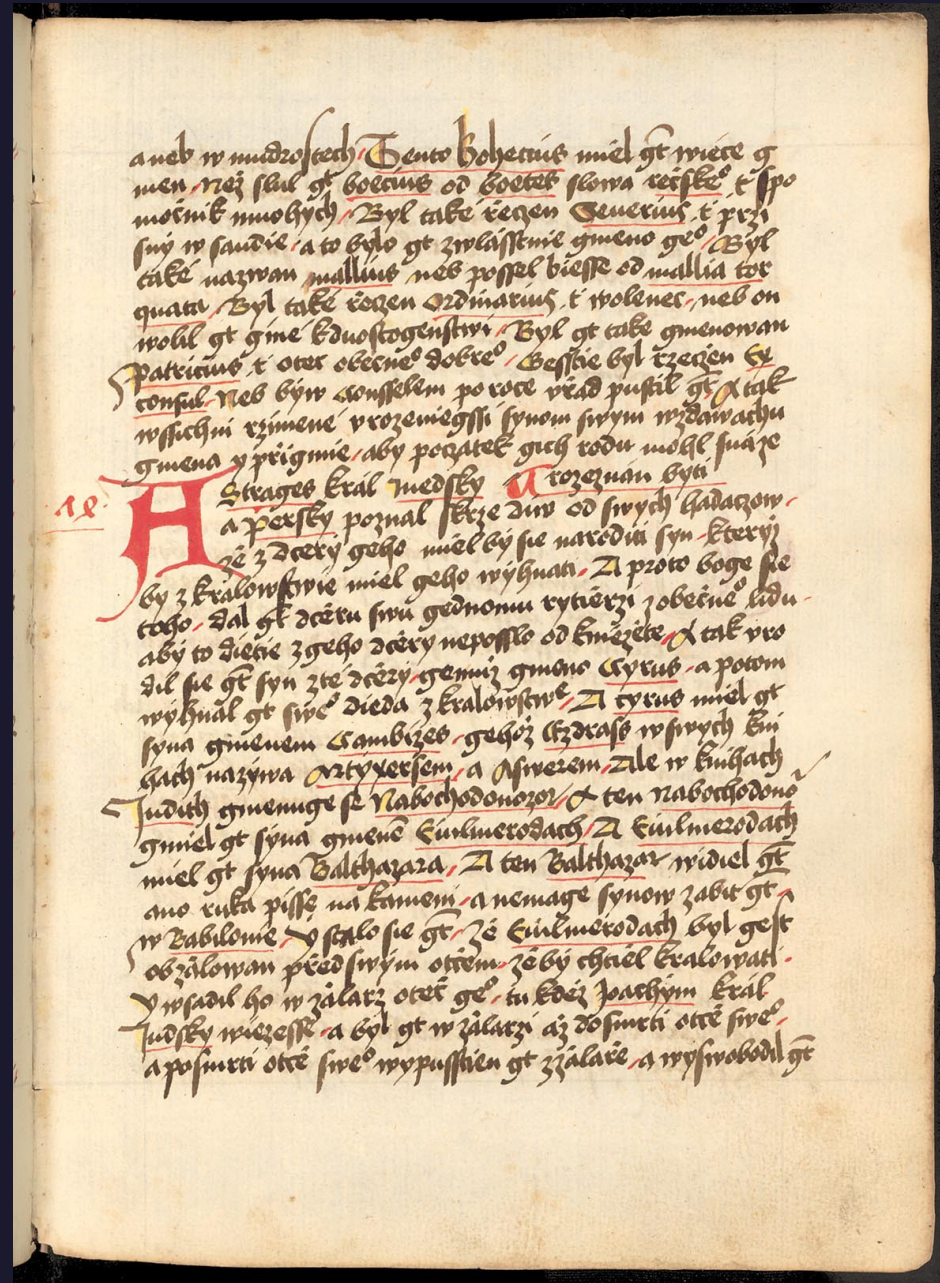 aneb w mudrostech / Tento Bohecius miel gt wiece g
men / Než slul gt boecius od boetes slowa řečskeo t spo
močnik mnohych / Byl také řeczen Severius t przi
sny w saudie / a to bylo gt zwlásstnie gmeno geo / Byl
také nazwan mallius neb possel biesse od mallia tor
quata / Byl také řeczen Ordinarius t wolenec / neb on
wolil gt giné k duostogenstwi / Byl gt take gmenowan
Patricius t otec obecneo dobreo / Gesstie byl rzeczen Ex
consul / Neb býw Consselem po roce vřad pustil gt / A tak
wssichni rzimené vrozeniegssi synom swym wzdáwachu
gmena y prigmie / aby poczatek gich rodu mohl snáze
rozeznan byti
18
AStrages král medsky
a persky poznal skrze diw od swych hadaczow /
že z dcery geho miel by sie naroditi syn / kterýž
by z kralowstwie miel geho wyhnati / A proto boge sie
toho / dal gt dcéru swú gednomu rytierzi z obecneo lidu /
aby to dietie z geho dcéry neposslo od kniežete / A tak vro
dil sie gt syn z té dcéry / gemuž gmeno Cyrus / a potom
wyhnal gt sweo dieda z kralowstwe / A cyrus miel gt
syna gmenem Cambizes / gehož Ezdrass w swych kni
hach nazýwa Artyxersem / a Aswerem / Ale w knihach
Judith gmenuge se Nabochodonozor / A ten Nabochodono
gmiel gt syna gmenē Euilmerodach / A Euilmerodach
miel gt syna Balthazara / A ten Balthazar widiel gt
ano ruka pisse na kameni / a nemage synow zabit gt /
w Babilonie / Y stalo sie gt / že Euilmerodach byl gest
obžalowan před swym otcem / žeby chtiel kralowati /
Y wsadil ho w žalarz otec geo / tu kdež Joachým král
Judsky wiezesse / a byl gt w žalarzi až do smrti otce sweo /
a po smrti otce sweo wypusstien gt z žalaře / a wyswobodil gt